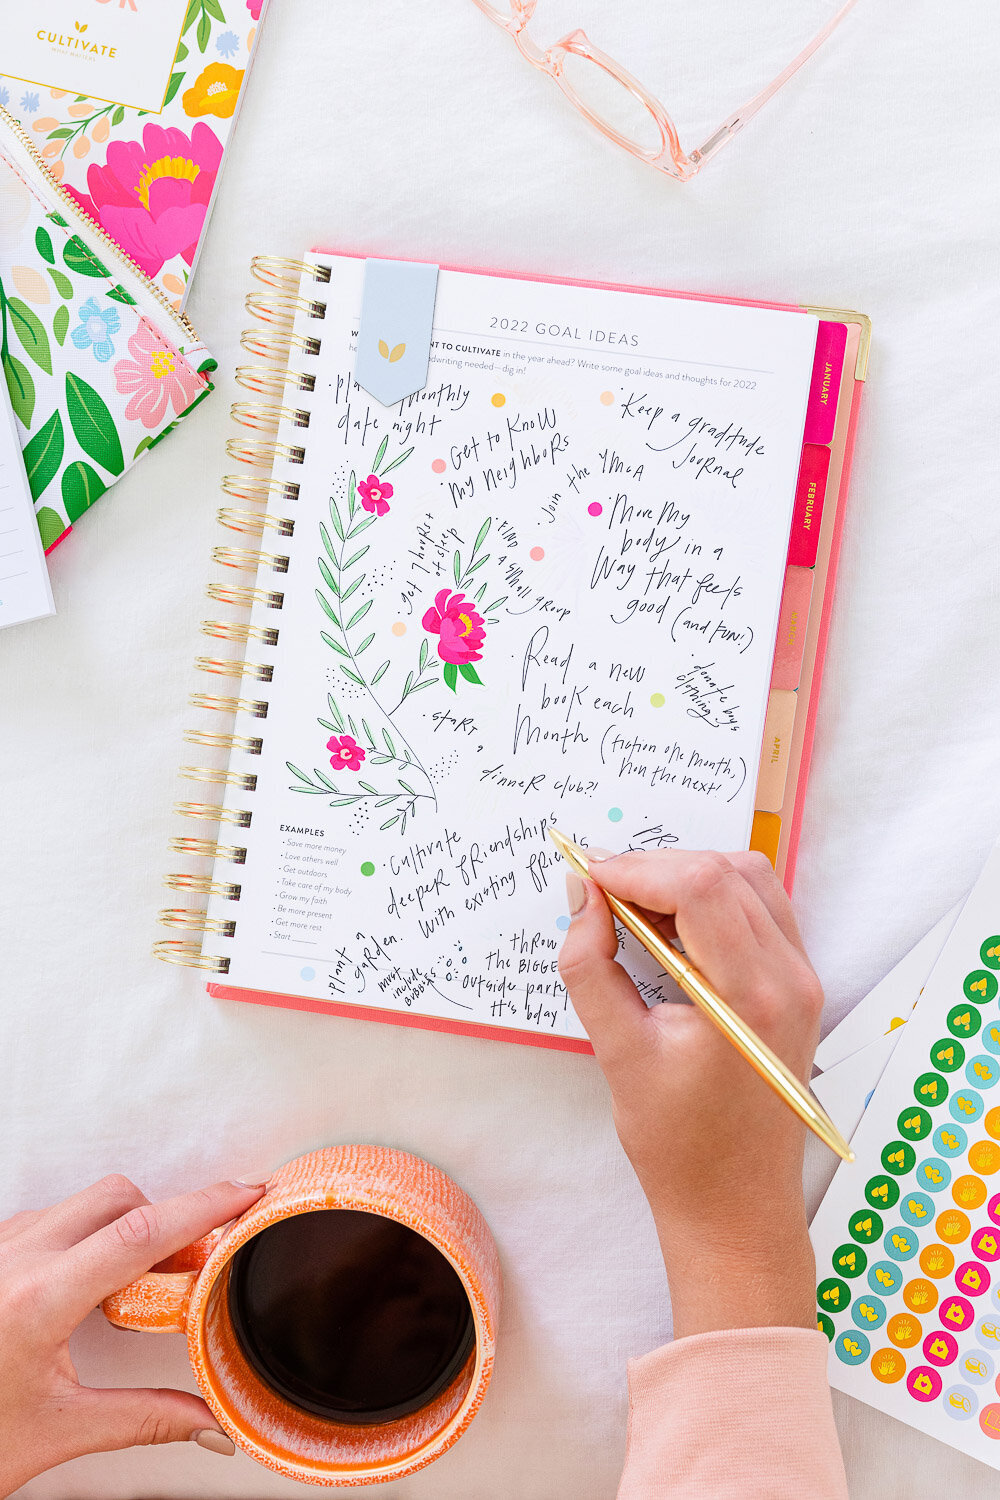 CULTIVATE
WHAT MATTERS
2022 GOAL IDEAS
NT TO CULTIVATE in the year ahead? Write some goal ideas and thoughts for 2022
dwriting needed—dig in!
monthly
date night
Get to know
my neighbors
Keep a gratitude
journal
Join the YMCA
Move my
body in a
way that feels
good (and FUN!)
Get 7 hours +
of sleep
FIND
A small group
Read a new
book each
month (fiction one month,
non the next!
donate boys
clothing
start
dinner club?!
Cultivate
deeper friendships
with existing friends
EXAMPLES
• Save more money
• Love others well
• Get outdoors
• Take care of my body
• Grow my faith
• Be more present
• Get more rest
• Start
Plant a
garden.
must
include
BUBBLES
throw
the BIGGE
outside party
it's bday
HAVE
JANUARY
FEBRUARY
MARCH
APRIL